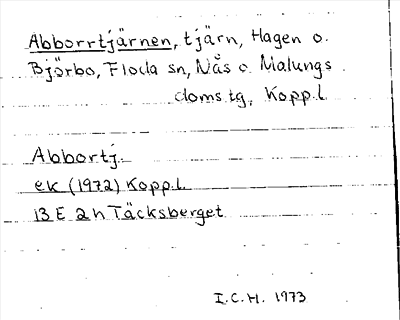 Abborrtjärnen, tjärn, Hagen o.
Björbo, Floda sn, Nås o. Malungs
doms.tg., Kopp.l.
Abbortj.
ek (1972) Kopp.l.
13 E 2h Täcksberget
I.C.H. 1973